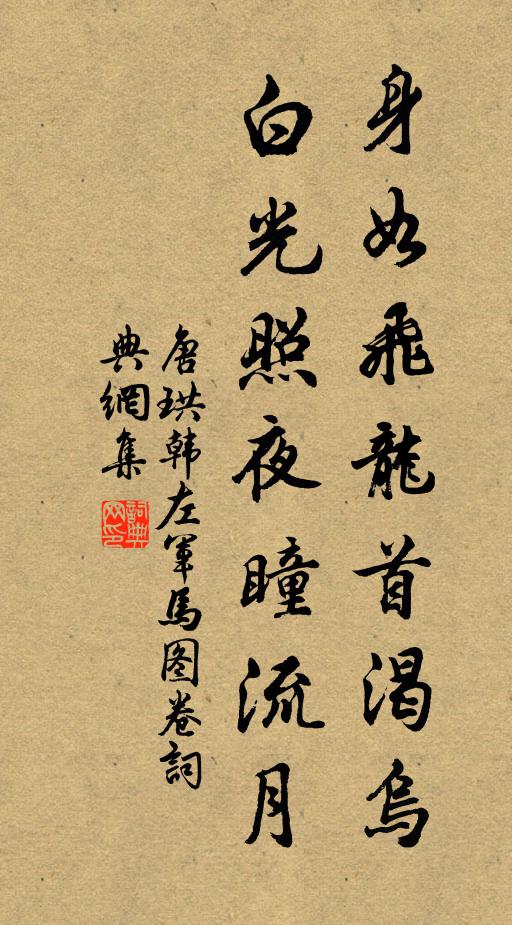 身如飛龍首渴烏
白光照夜瞳流月
唐珙韩左軍馬图卷詞
典網集
詞典网印